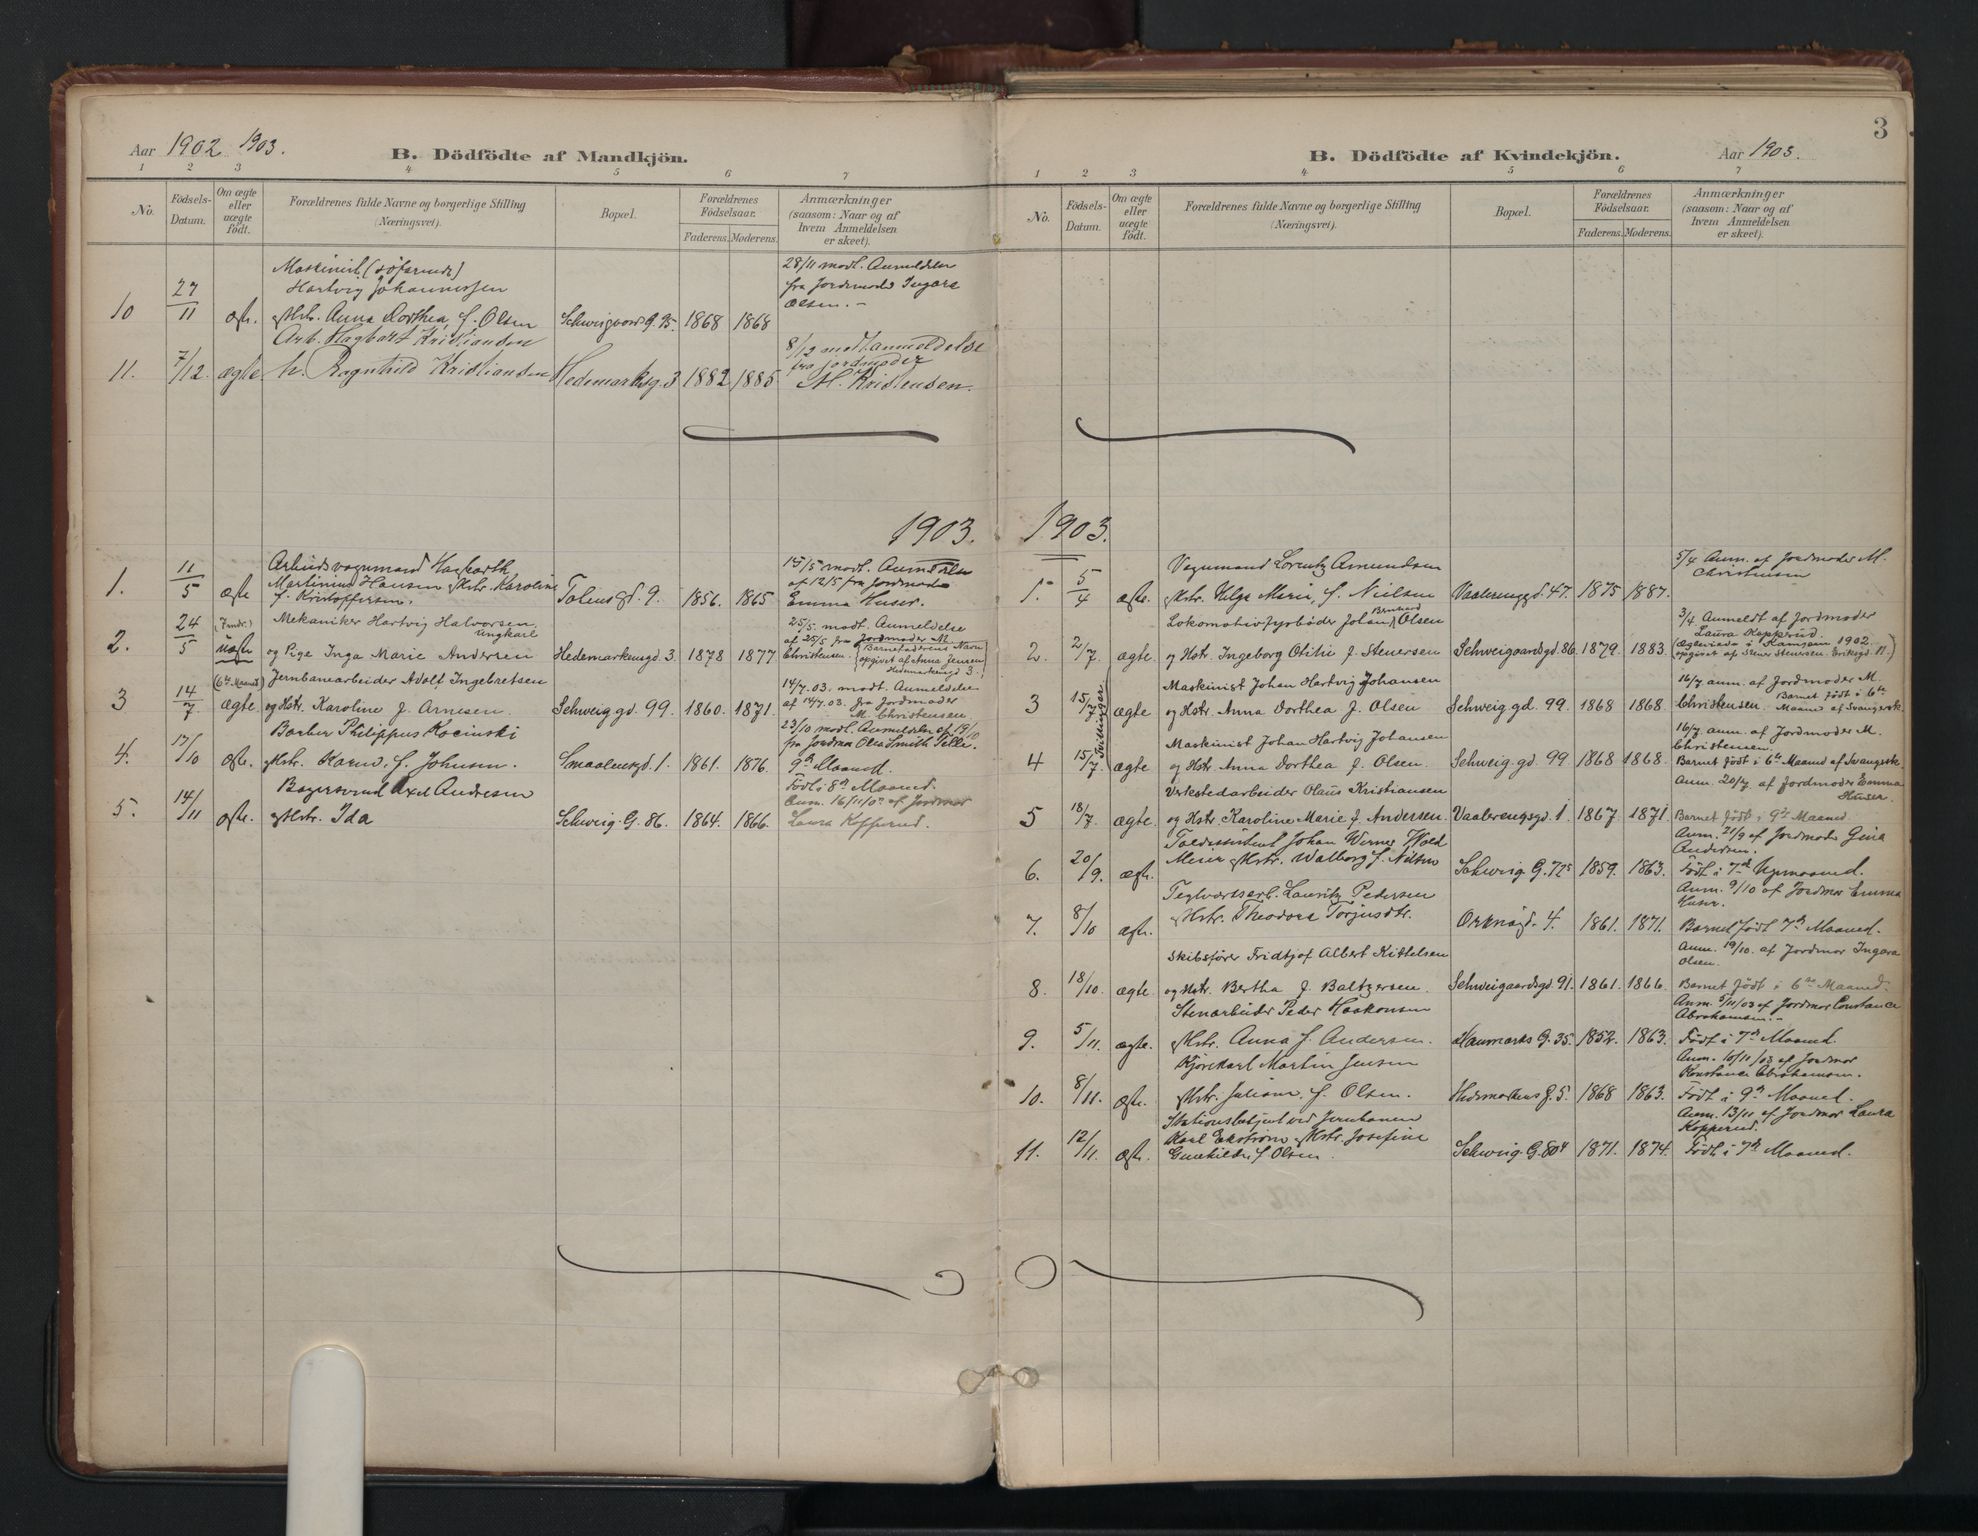 Aar 1902 1903.
B. Dödfödte af Mandkjön.
1 2 3 4 5 6 7
No.
Födsels-Datum.
Om ægte eller uægte födt.
Forældrenes fulde Navne og borgerlige Stilling (Næringsvei).
Bopæl.
Forældrenes Födselsaar.
Faderens. Moderens.
Anmærkninger (saasom: Naar og af hvem Anmeldelsen er skeet).
Maskinist (söfarende)
Hartvig Johannessen
10 27/11 ægte. & Hstr. Anna Dorthea f. Olsen Schweigaards G. 95. 1868 1868
28/11 modt. Anmeldelse
fra Jordmoder Ingara
Olsen.-
Arb. Hagbart Kristiansen
11. 7/12. ægte h. Ragnhild Kristiansen Hedemarksg. 3 1882 1885
8/12 modt. anmeldelse
fra jordmoder
M. Kristensen.
1903.
Arbeidsvognmand Hagbarth
1. 11/5 ægte Martinius Hansen & Hstr. Karoline
f. Kristoffersen. Tøiensgd. 9. 1856. 1865
15/5 modt. Anmeldelse
af 12/5 fra Jordmoder
Emma Huser.
Mekaniker Hartvig Halvorsen,
ungkarl
2. 24/5 uægte og Pige Inga Marie Andersen Hedemarkengd. 3. 1878 1877
25/5. modt. Anmeldelse
af 25/5 fra Jordmoder M.
Christensen. (Barnefaderens Navn
opgivet af Anna Jensen
Hedemarkengd 3.)
(6te Maaned) Jernbanearbeider Adolf Ingebretsen
3 14/7 ægte og Hstr. Karoline f. Arnesen. Schweiggd. 99. 1860. 1871.
14/7.03. modt. Anmeldelse
af 14/7.03. fra Jordmoder
M. Christensen.
Barber Philippus Kocinski
4. 17/10 ægte. & Hstr. Karen f. Johnsen. Smaalensgd. 1. 1861. 1876.
23/10 modt. Anmeldelse af 19/10
fra Jordmor Olea Smith Pelle.
9de Maaned.
Bagersvend Axel Andresen
5. 14/11 ægte. & Hstr. Ida Schweig. G. 86. 1864. 1866.
Födt i 8de Maaned.
Anm. 16/11 0 af Jordmor
Laura Kopperud.
3
B. Dödfödte af Kvindekjön.
Aar 1903.
1 2 3 4 5 6 7
No.
Födsels-Datum.
Om ægte eller uægte födt.
Forældrenes fulde Navne og borgerlige Stilling (Næringsvei).
Bopæl.
Forældrenes Födselsaar.
Faderens. Moderens.
Anmærkninger (saasom: Naar og af hvem Anmeldelsen er skeet).
1903.
Vognmand Lorentz Amundsen
1. 5/4 ægte. & Hstr. Helga Marie, f. Nielsen Vaalerenggd. 47. 1875 1887.
5/4 Anm. af Jordmoder M.
Christensen
Lokomotivfyrbøder Johan Bernhard Olsen
2. 2/7. ægte og Hstr. Ingeborg Otilie f. Stenersen Schweigaardsgd. 86. 1879. 1883.
3/4 Anmeldt af Jordmoder
Laura Kopperud.
Maskinist Johan Hartvig Johansen
3 15/7 Tvillinger. ægte og Hstr. Anna Dorthea f. Olsen Schweiggd. 99. 1868 1868.
16/7 anm. af Jordmoder M.
Christensen. Barnet födt i 6te
Maaned af Svangersk.
Maskinist Johan Hartvig Johansen
4 15/7. ægte og Hstr. Anna Dorthea f. Olsen. Schweig. gd. 99 1868 1868.
16/7. anm. af Jordmoder M.
Christensen.
Barnet födt i 6te Maaned af Svangersk.
Verkstedarbeider Olaus Kristiansen
5 18/7. ægte. og Hstr. Karoline Marie f. Andersen. Vaalerengsgd. 1. 1867. 1871.
Anm. 20/7. af Jordmoder Emma
Huser.
Barnet födt i 9de Maaned
Toldassistent Johan Werner Wold
6. 20/9. ægte. Meier & Hstr. Walborg f. Nilsen Schweig G. 72 1859. 1863.
Anm. 21/9 af Jordmoder Gina
Andersen.
Födt i 7de Maaned.
Teglværksarb. Lauritz Pedersen
7. 8/10 ægte. & Hstr. Theodora Torjusdtr. Orknögd. 4. 1861. 1871.
Anm. 9/10 af Jordmor Emma
Huser.
Barnet födt 7de Maaned.
Skibsfører Fridtjof Albert Kittelsen
8. 18/10. ægte. og Hstr. Bertha f. Baltzersen. Schweigaardsgd. 91. 1861. 1866.
Anm. 19/10. af Jordmor Ingara
Olsen.
Barnet födt i 6te Maaned.
Stenarbeider Peder Haakonsen
9. 5/11. ægte. & Hstr. Anna f. Andersen. Haumarks G. 35. 1852. 1863.
Anm. 5/11/03 af Jordmor Constance
Abrahamsen.-
Födt i 7de Maaned.
Kjørekarl Martin Jensen
10. 8/11. ægte. & Hstr. Juliane f. Olsen. Hedemarkens G. 5. 1868 1863.
Anm. 10/11/03 af Jordmor
Konstance Abrahamsen.
Födt i 9de Maaned.
Stationsbetjent ved Jernbanen
11. 12/11. ægte. Karl Ekström & Hstr. Josefine
Gunhilde f. Olsen. Schweig. G. 80 1871. 1874.
Anm. 13/11 af Jordmor Laura
Kopperud.
Födt i 7de Maaned.